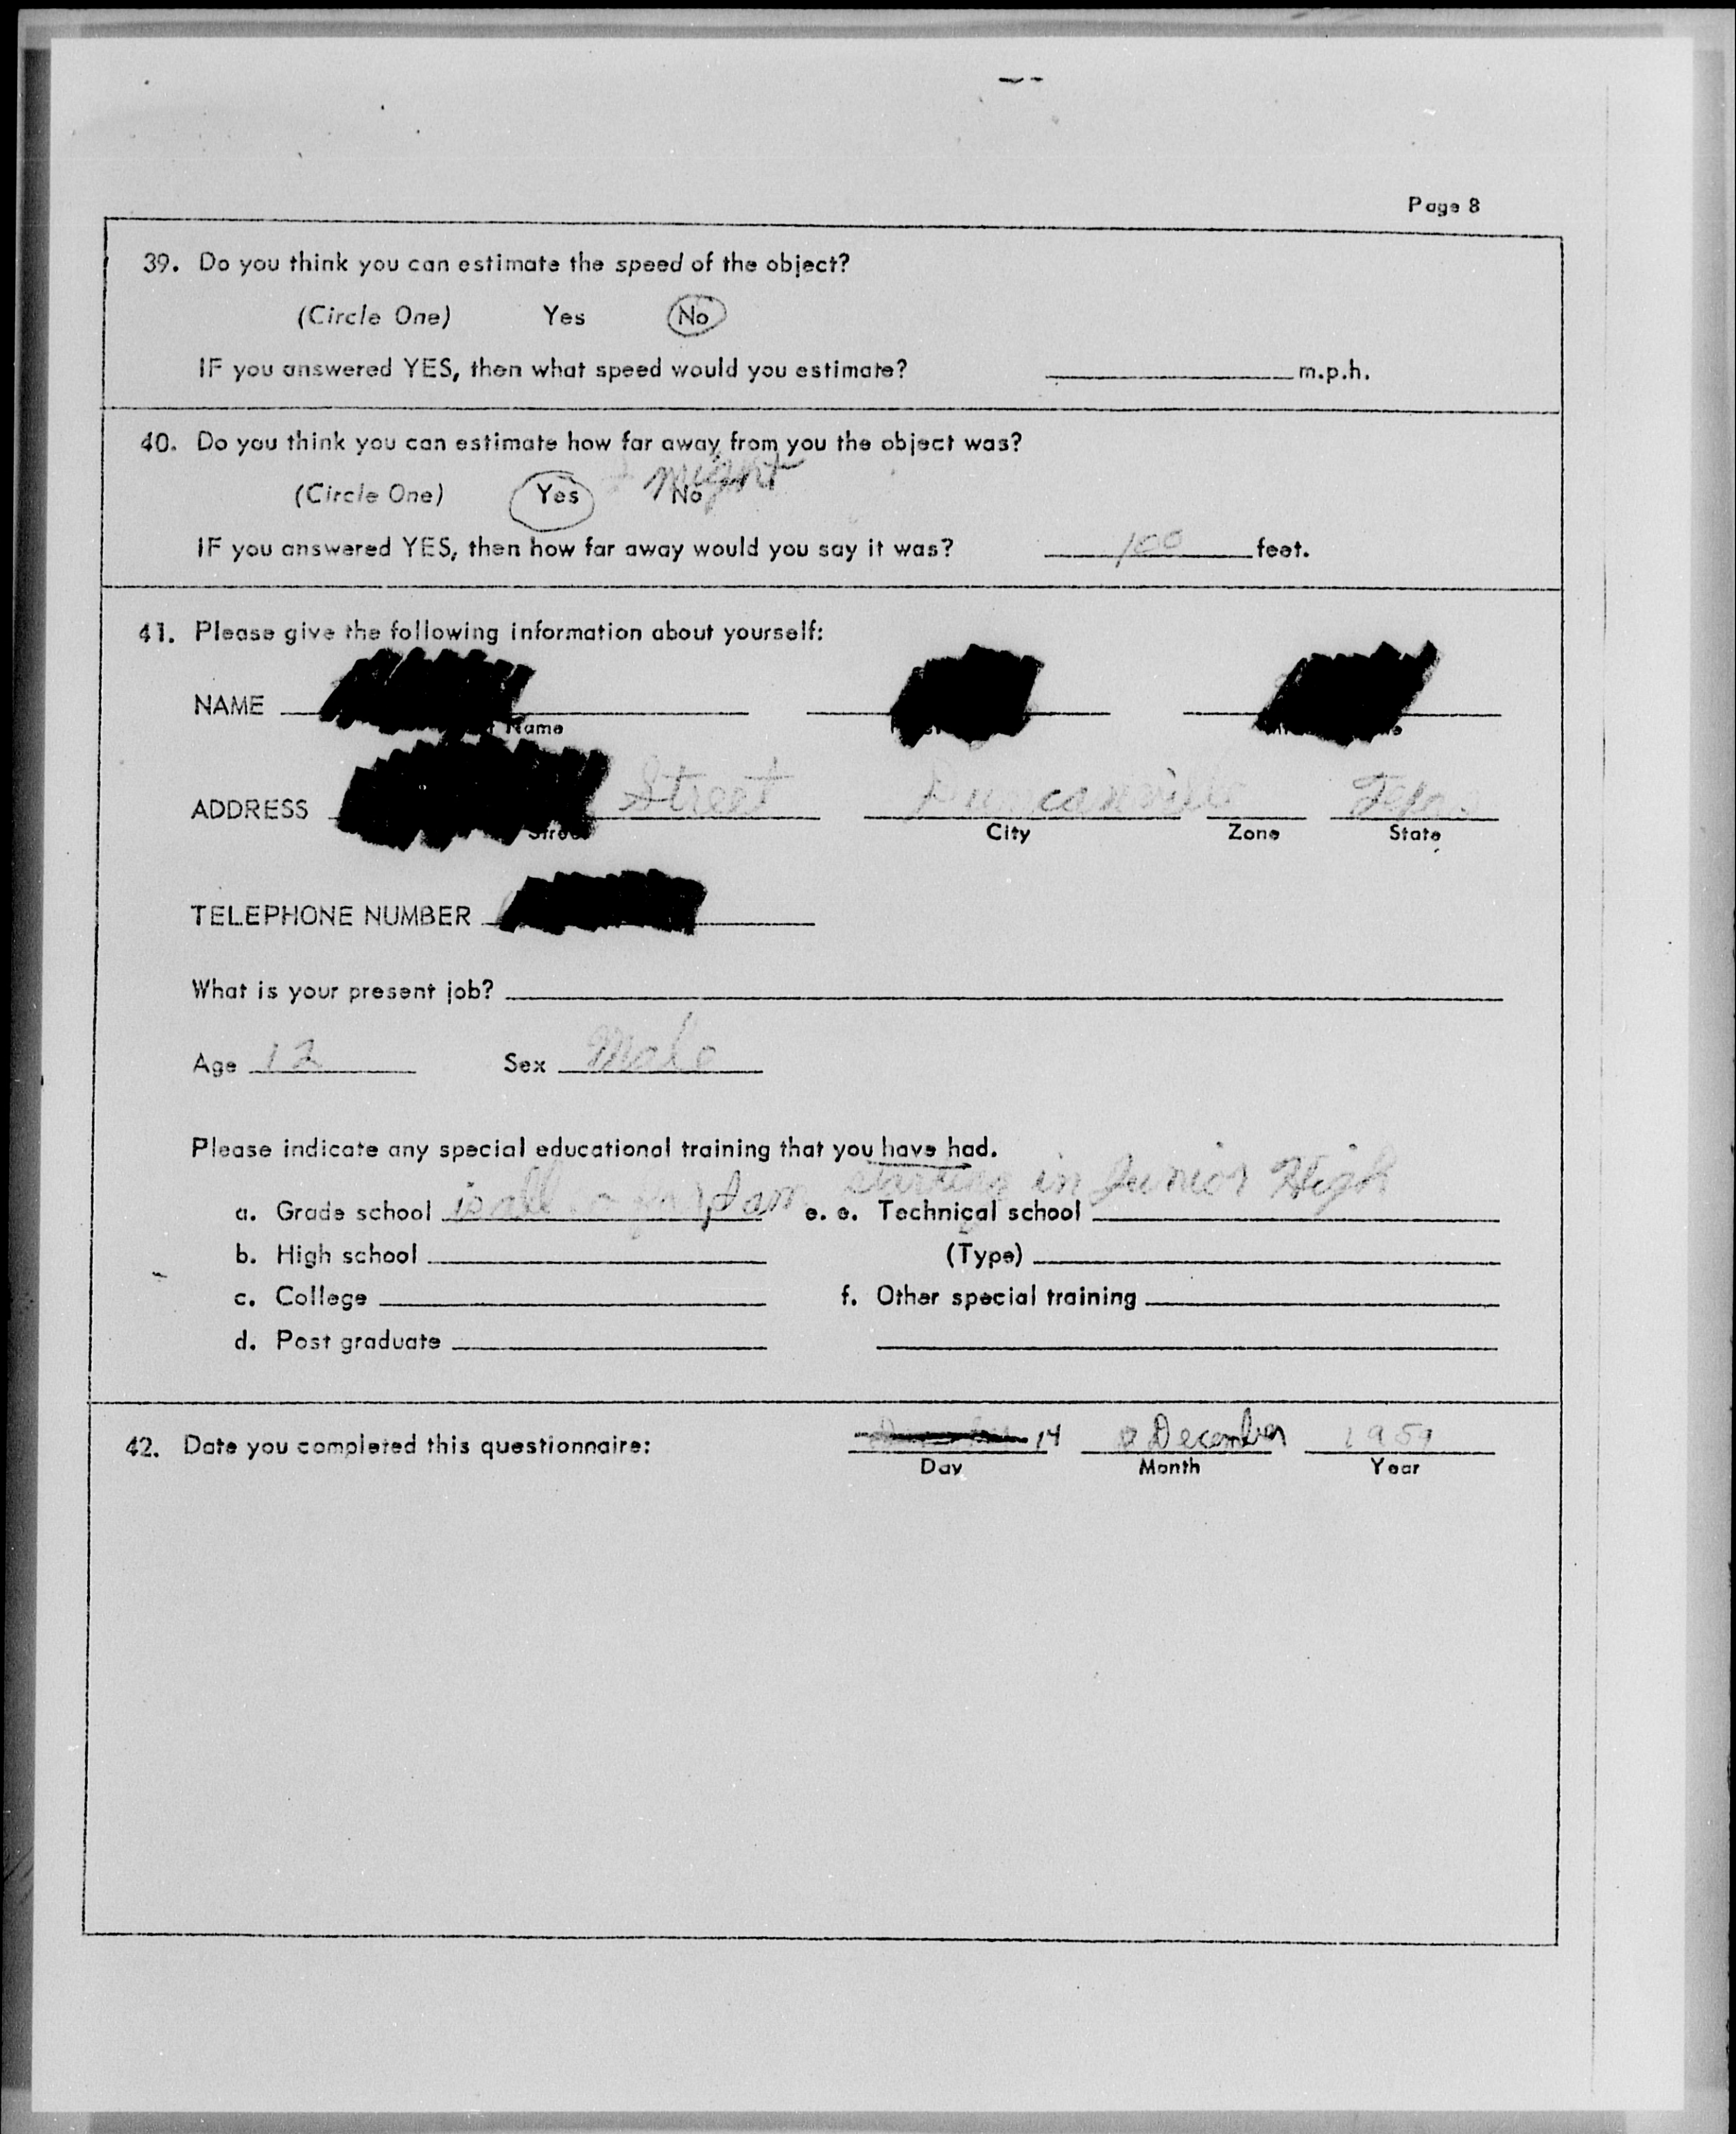 Page 8
39. Do you think you can estimate the speed of the object?
(Circle One) Yes No
IF you answered YES, then what speed would you estimate? m.p.h.
40. Do you think you can estimate how far away from you the object was?
I might
(Circle One) Yes No
IF you answered YES, then how far away would you say it was? 100 feet.
41. Please give the following information about yourself:
NAME
Name
ADDRESS Street Duncanville Tex.
Street City Zone State
TELEPHONE NUMBER
What is your present job?
Age 12 Sex Male
Please indicate any special educational training that you have had.
starting in Junior High
a. Grade school is all so far I am e. e. Technical school
b. High school (Type)
c. College f. Other special training
d. Post graduate
42. Date you completed this questionnaire: 14 December 1959
Day Month Year